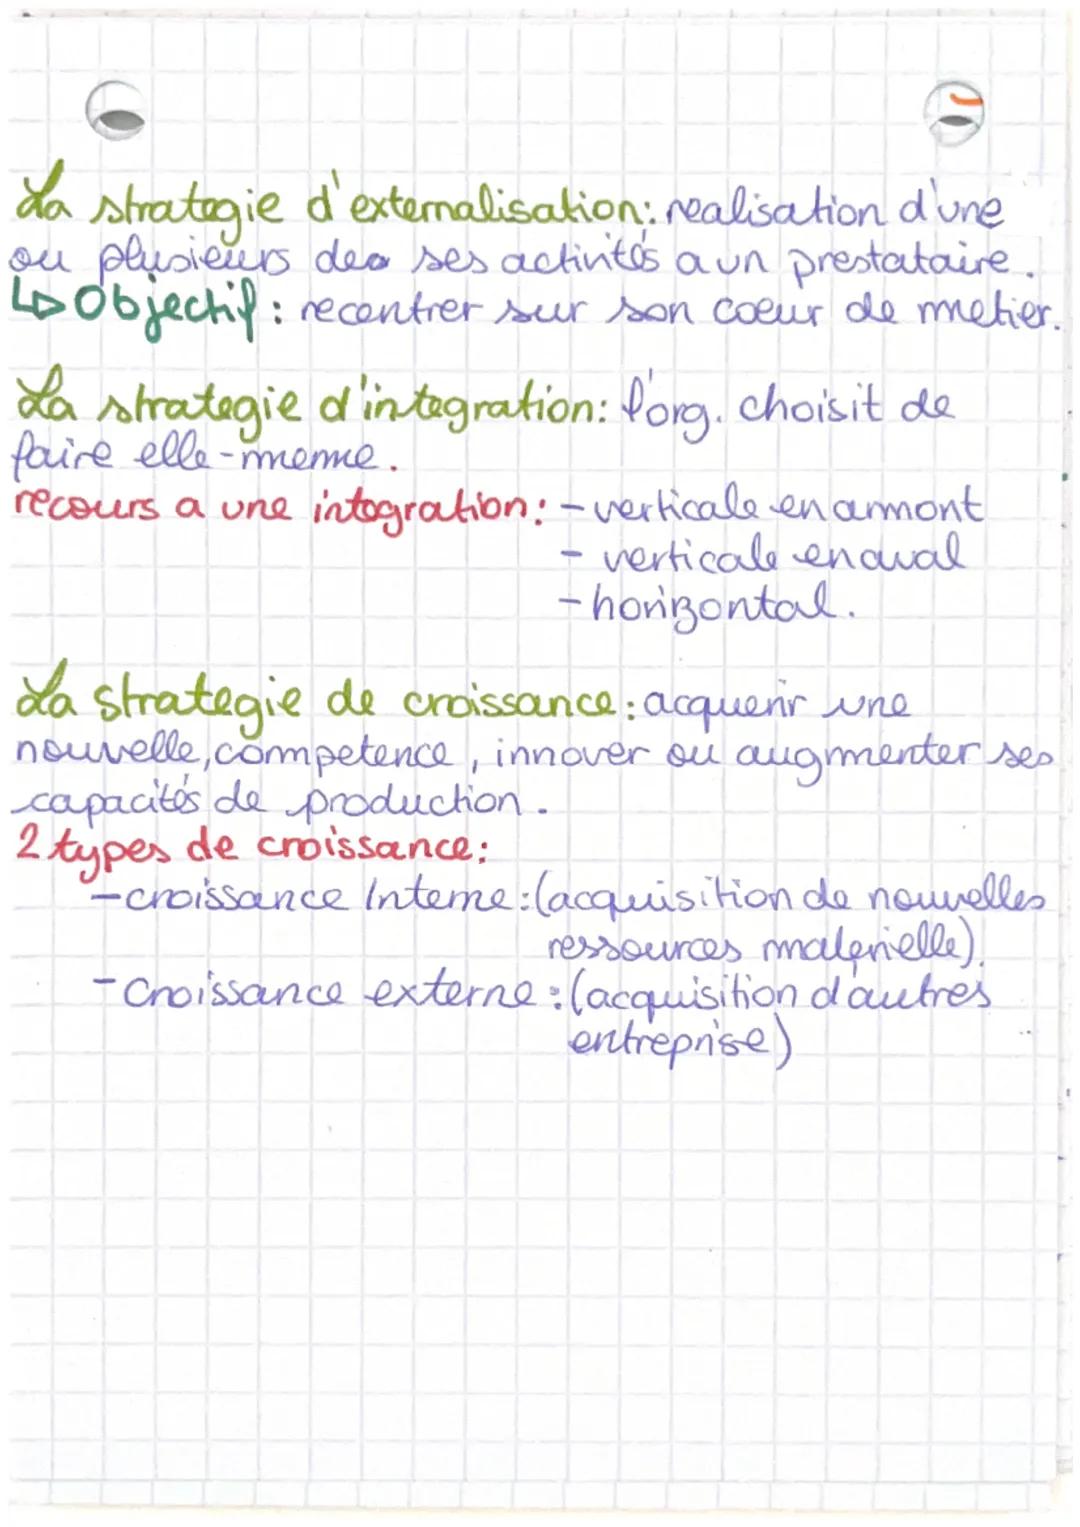 La strategie d'externalisation: realisation d'une
ou plusieurs des ses activités a un prestataire.
Objectif : recentrer sur son coeur de metier.
La strategie d'integration: l'org. choisit de
faire elle-meme.
recours a une integration: - verticale en amont
- verticale en aval
- horizontal.
La strategie de croissance: acquerir une
nouvelle, competence, innover ou augmenter ses
capacités de production.
2 types de croissance:
- croissance Interne: (acquisition de nouvelles
ressources materielle).
- Croissance externe: (acquisition d'autres
entreprise)